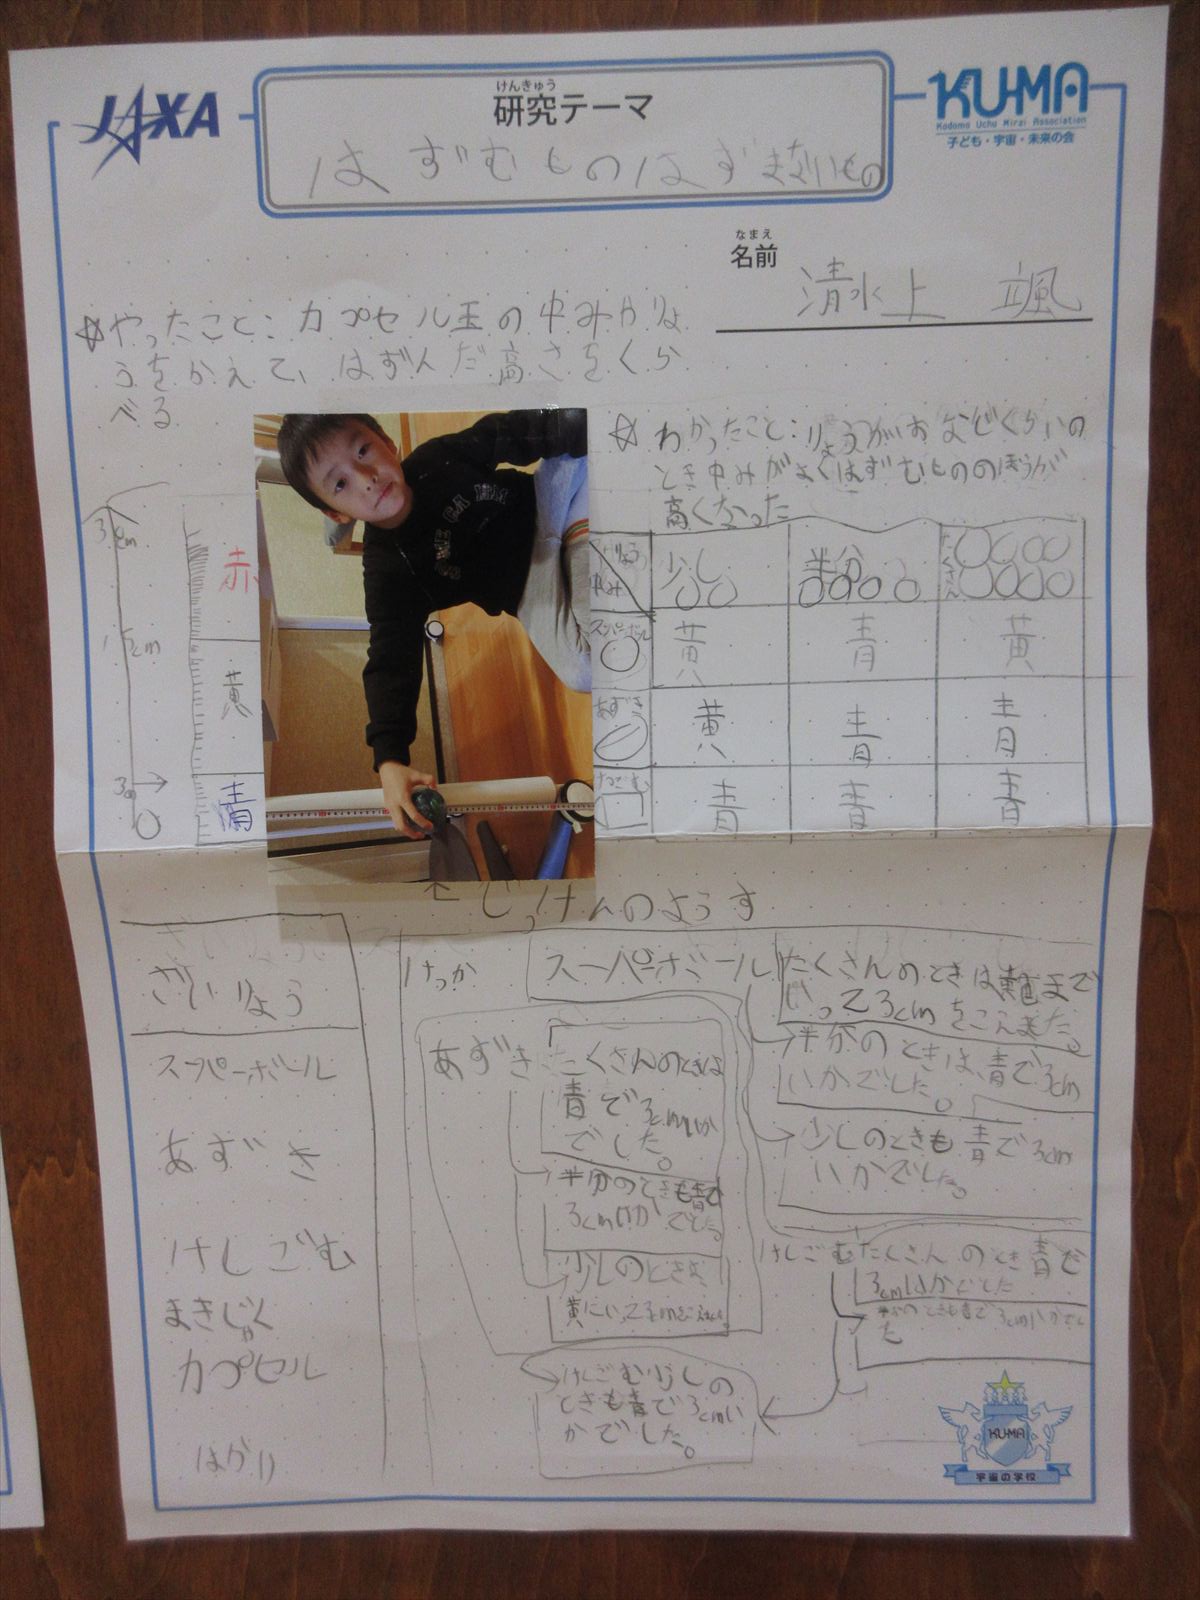 JAXA
けんきゅう
研究テーマ
はずむものはずまないもの
KUMA
Kodomo Uchu Mirai Association
子ども・宇宙・未来の会
なまえ
名前 清水上 颯
☆やったこと:カプセル玉の中みやりょ
うをかえて、はずんだ高さをくら
べる
☆わかったこと:りょうがおなじくらいの
とき中みがよくはずむもののほうが
高くなった
赤
黄
青
りょう 少し 半分 たくさん
中み
スーパーボール 黄 青 黄
あずき 黄 青 青
けしごむ 青 青 青
じっけんのようす
ざいりょう
スーパーボール
あずき
けしごむ
まきじゃく
カプセル
はかり
けっか
スーパーボール
たくさんのときは黄色まで
いって3cmをこえました。
半分のときは、青で3cm
いかでした。
少しのときも青で3cm
いかでした。
あずき
たくさんのときは
青で3cmいか
でした。
半分のときも青で
3cmいかでした。
少しのときは
黄にいって3cmをこえました。
けしごむたくさんのとき青で
3cmいかでした
半分のときも青で3cmいかでし
た
けしごむ少しの
ときも青で3cmい
かでした。
KU-MA
宇宙の学校